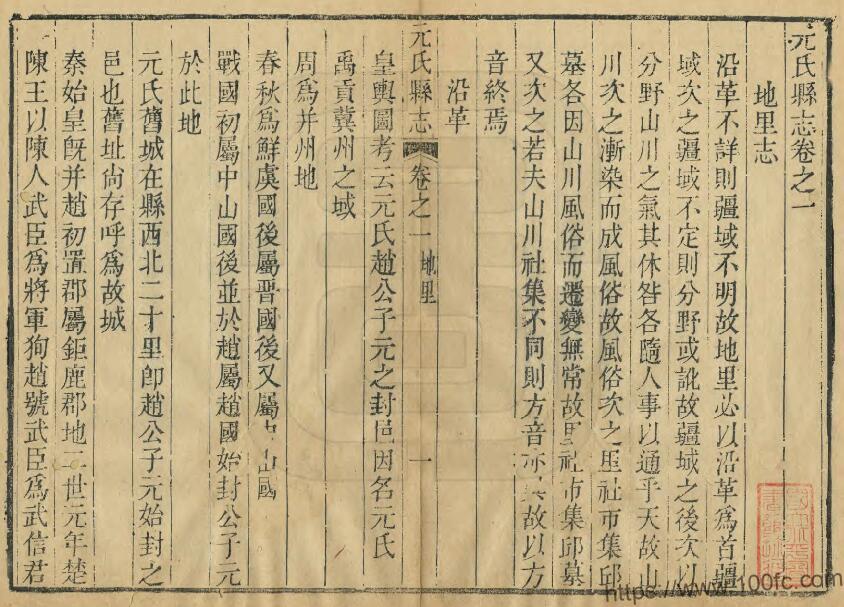 元氏縣志卷之一
地里志
沿革不詳則疆域不明故地里必以沿革爲首疆
域次之疆域不定則分野或訛故疆域之後次以
分野山川之氣其休咎各隨人事以通乎天故山
川次之漸染而成風俗故風俗次之里社市集邱
墓各因山川風俗而遷變無常故里社市集邱墓
又次之若夫山川社集不同則方音亦異故以方
音終焉
沿革
元氏縣志 卷之一 地里 一
皇輿圖考云元氏趙公子元之封邑因名元氏
禹貢冀州之域
周爲并州地
春秋爲鮮虞國後屬晋國後又屬中山國
戰國初屬中山國後並於趙屬趙國始封公子元
於此地
元氏舊城在縣西北二十里卽趙公子元始封之
邑也舊址尙存呼爲故城
秦始皇旣并趙初置郡屬鉅鹿郡地二世元年楚
陳王以陳人武臣爲將軍狥趙號武臣爲武信君
https://www.100fc.com